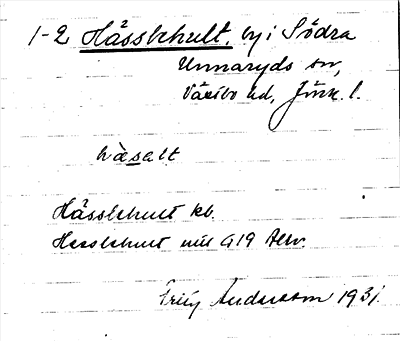 1-2 Hässlehult, by i Södra
Unnaryds sn,
Västbo hd, Jönk. l.
hàsalt
Hässlehult kb.
Hesslehult mil G19
Frity Andersson 1931.